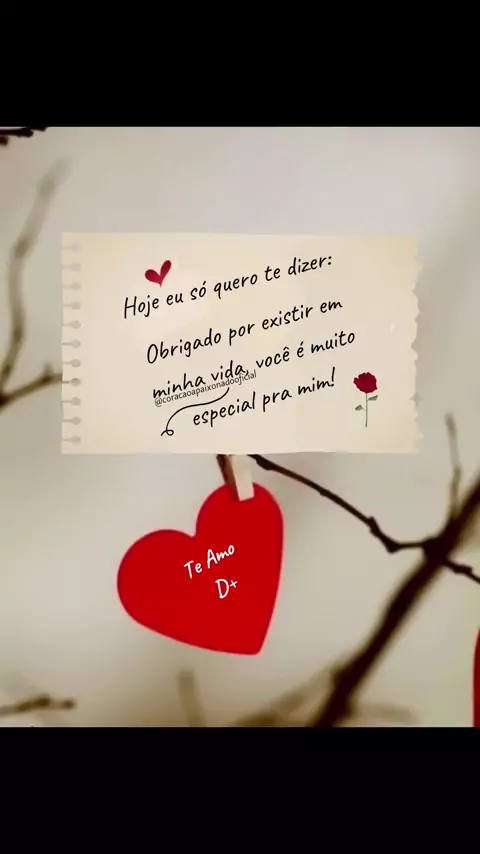 Hoje eu só quero te dizer:
Obrigado por existir em
minha vida, você é muito
@coracaoapaixonadooficial
especial pra mim!
Te Amo
D+